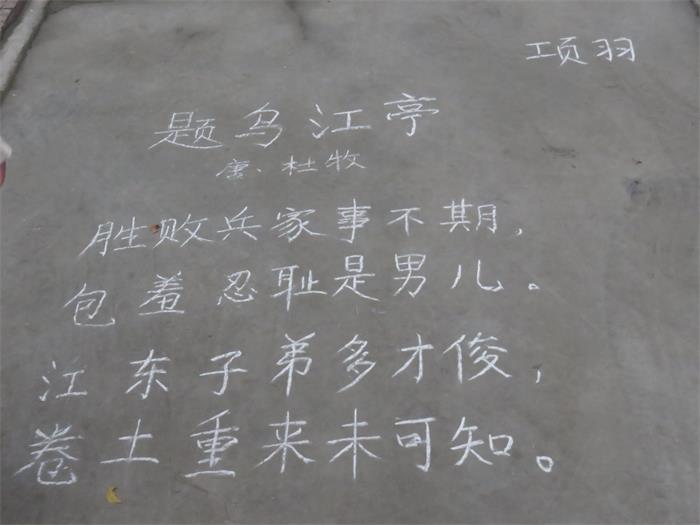 项羽
题乌江亭
唐·杜牧
胜败兵家事不期，
包羞忍耻是男儿。
江东子弟多才俊，
卷土重来未可知。